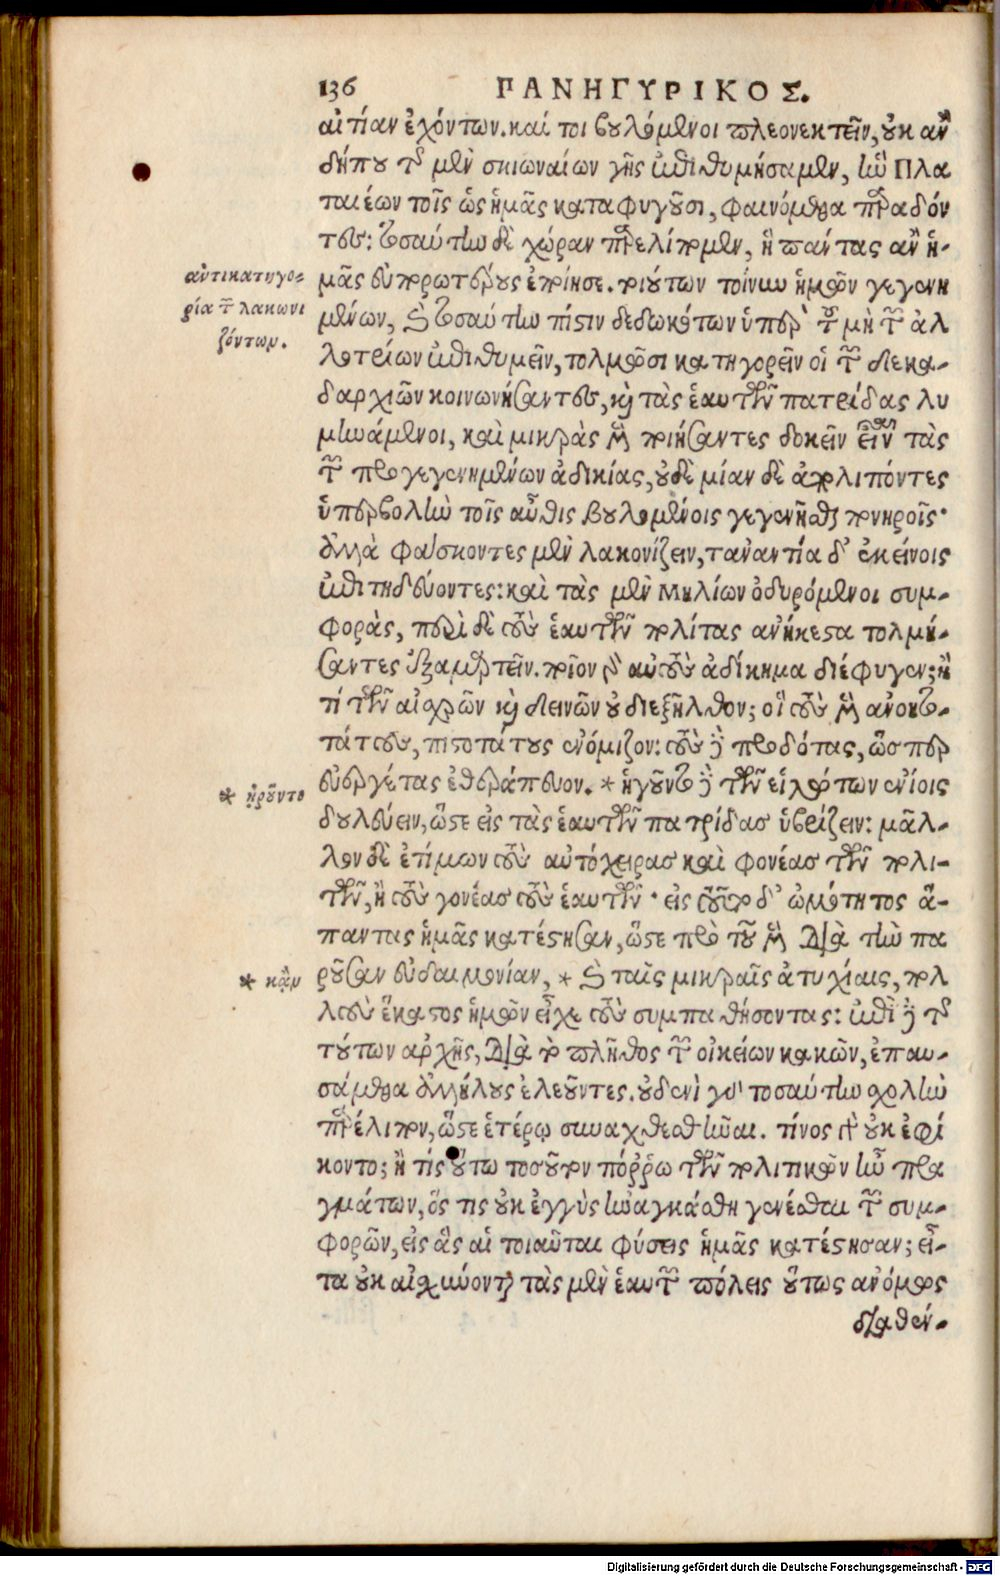 136 ΠΑΝΗΓΥΡΙΚΟΣ.
αἰτίαν ἐχόντων. καί τοι βουλόμενοι πλεονεκτεῖν, οὐκ ἂν
δήπου τῆς μὲν σκιωναίων γῆς ἐπιθυμήσαμεν, ἣν Πλα
ταιέων τοῖς ὡς ἡμᾶς καταφυγοῦσι, φαινόμεθα παραδόν
τες: τοσαύτην δὲ χώραν παρελίπομεν, ἣ πάντας ἂν ἡ-
μᾶς εὐπορωτέρους ἐποίησε. τοιούτων τοίνυν ἡμῶν γεγενη
μένων, καὶ τοσαύτην πίστιν δεδωκότων ὑπὲρ τοῦ μὴ τῶν ἀλ
λοτρίων ἐπιθυμεῖν, τολμῶσι κατηγορεῖν οἱ τῶν δεκα-
δαρχιῶν κοινωνήσαντες, καὶ τὰς ἑαυτῶν πατρίδας λυ
μηνάμενοι, καὶ μικρὰς μὲν ποιήσαντες δοκεῖν εἶναι τὰς
τῶν προγεγενημένων ἀδικίας, οὐδὲ μίαν δὲ ἀπολιπόντες
ὑπερβολὴν τοῖς αὖθις βουλομένοις γεγενῆσθαι πονηροῖς·
ἀλλὰ φάσκοντες μὲν λακονίζειν, τἀναντία δ' ἐκείνοις
ἐπιτηδεύοντες: καὶ τὰς μὲν Μηλίων ὀδυρόμενοι συμ-
φορὰς, περὶ δὲ τοὺς ἑαυτῶν πολίτας ἀνήκεστα τολμή-
σαντες ἐξαμαρτεῖν. ποῖον γὰρ αὐτοὺς ἀδίκημα διέφυγεν; ἢ
τί τῶν αἰσχρῶν καὶ δεινῶν οὐ διεξῆλθον; οἳ τοὺς μὲν ἀνομω-
τάτους, πιστοτάτους ἐνόμιζον: τοὺς δὲ προδότας, ὥσπερ
εὐεργέτας ἐθεράπευον. * ἡγοῦντο δὲ τῶν εἱλώτων ἐνίοις
δουλεύειν, ὥστε εἰς τὰς ἑαυτῶν πατρίδας ὑβρίζειν: μᾶλ-
λον δὲ ἐτίμων τοὺς αὐτόχειρας καὶ φονέας τῶν πολι-
τῶν, ἢ τοὺς γονέας τοὺς ἑαυτῶν · εἰς τοῦτο δ' ὠμότητος ἅ-
παντας ἡμᾶς κατέστησαν, ὥστε πρὸ τοῦ μὲν διὰ τὴν πα
ροῦσαν εὐδαιμονίαν, * καὶ ταῖς μικραῖς ἀτυχίαις, πολ
λοὺς ἕκαστος ἡμῶν εἶχε τοὺς συμπαθήσοντας: ἐπὶ δὲ τῆς
τούτων ἀρχῆς, διὰ τὸ πλῆθος τῶν οἰκείων κακῶν, ἐπαυ-
σάμεθα ἀλλήλους ἐλεοῦντες. οὐδενὶ γὰρ τοσαύτην σχολὴν
παρέλιπον, ὥστε ἑτέρῳ συναχθεσθῆναι. τίνος γὰρ οὐκ ἐφί
κοντο; ἢ τίς οὕτω τοσοῦτον πόῤῥω τῶν πολιτικῶν ἦν πρα
γμάτων, ὅς τις οὐκ ἐγγὺς ἠναγκάσθη γενέσθαι τῶν συμ-
φορῶν, εἰς ἃς αἱ τοιαῦται φύσεις ἡμᾶς κατέστησαν; εἶ-
τα οὐκ αἰσχύνονται τὰς μὲν ἑαυτῶν πόλεις οὕτως ἀνόμως
διαθέν-
ἀντικατηγο-
ρία τῶν λακωνι
ζόντων.
* ᾑροῦντο
* κἂν
Digitalisierung gefördert durch die Deutsche Forschungsgemeinschaft - DFG